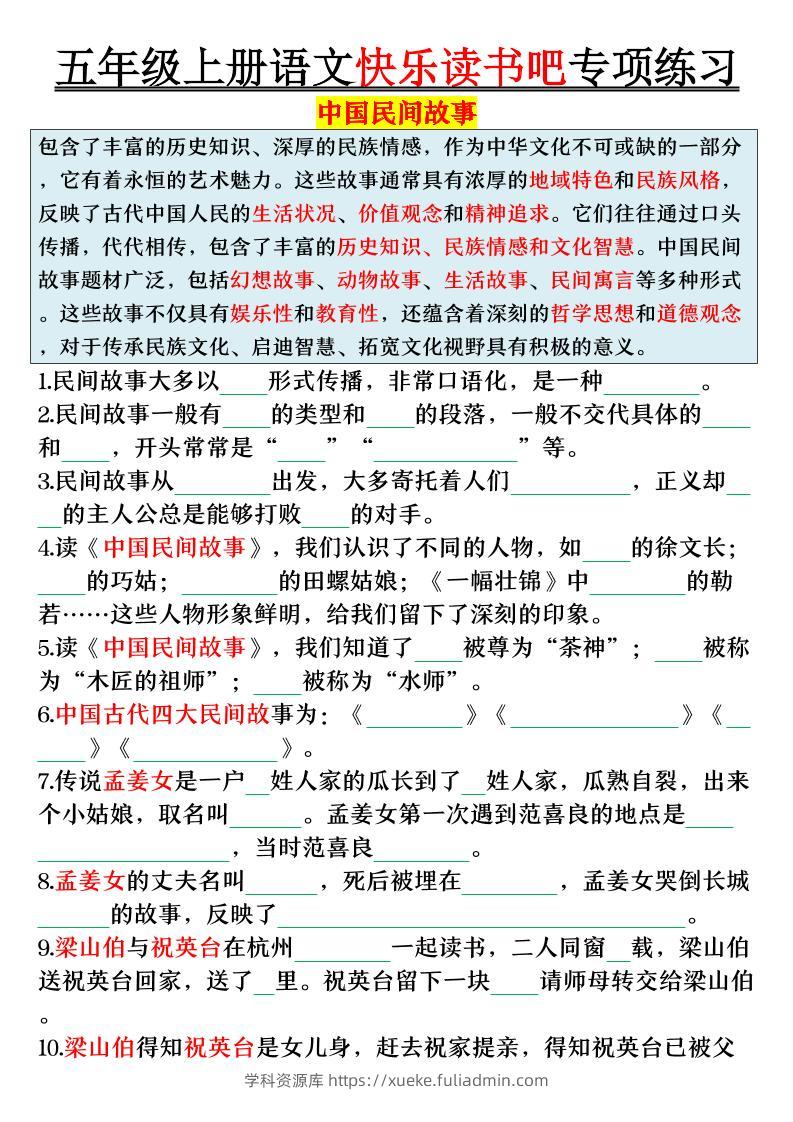 五年级上册语文快乐读书吧专项练习
中国民间故事
包含了丰富的历史知识、深厚的民族情感，作为中华文化不可或缺的一部分
，它有着永恒的艺术魅力。这些故事通常具有浓厚的地域特色和民族风格，
反映了古代中国人民的生活状况、价值观念和精神追求。它们往往通过口头
传播，代代相传，包含了丰富的历史知识、民族情感和文化智慧。中国民间
故事题材广泛，包括幻想故事、动物故事、生活故事、民间寓言等多种形式
。这些故事不仅具有娱乐性和教育性，还蕴含着深刻的哲学思想和道德观念
，对于传承民族文化、启迪智慧、拓宽文化视野具有积极的意义。
1.民间故事大多以____形式传播，非常口语化，是一种________。
2.民间故事一般有____的类型和____的段落，一般不交代具体的____
和____，开头常常是“____”“____________”等。
3.民间故事从________出发，大多寄托着人们__________，正义却__
__的主人公总是能够打败____的对手。
4.读《中国民间故事》，我们认识了不同的人物，如____的徐文长；
____的巧姑；________的田螺姑娘；《一幅壮锦》中________的勒
若……这些人物形象鲜明，给我们留下了深刻的印象。
5.读《中国民间故事》，我们知道了____被尊为“茶神”；____被称
为“木匠的祖师”；____被称为“水师”。
6.中国古代四大民间故事为：《________》《______________》《__
____》《____________》。
7.传说孟姜女是一户__姓人家的瓜长到了__姓人家，瓜熟自裂，出来
个小姑娘，取名叫______。孟姜女第一次遇到范喜良的地点是____
________________，当时范喜良________。
8.孟姜女的丈夫名叫______，死后被埋在________，孟姜女哭倒长城
______的故事，反映了__________________________________。
9.梁山伯与祝英台在杭州________一起读书，二人同窗__载，梁山伯
送祝英台回家，送了__里。祝英台留下一块____请师母转交给梁山伯
。
10.梁山伯得知祝英台是女儿身，赶去祝家提亲，得知祝英台已被父
学科资源库 https://xueke.fuliadmin.com/